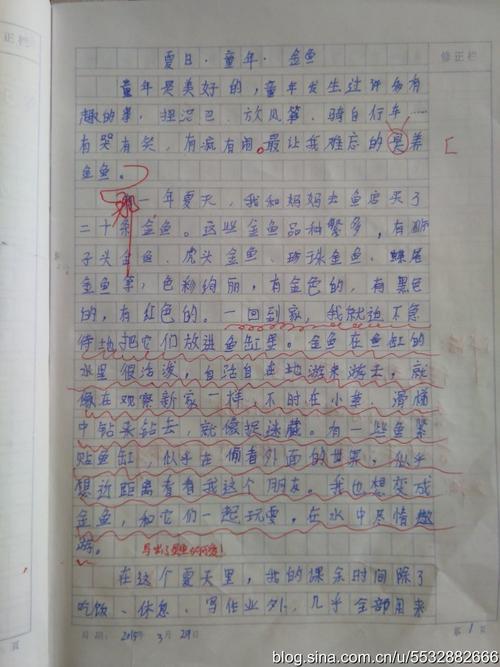 正栏
修正栏
夏日·童年·金鱼
童年是美好的，童年发生过许多有
趣的事，捏泥巴、放风筝、骑自行车……
有哭有笑，有疯有闹。最让我难忘的是养
金鱼。
那一年夏天，我和妈妈去鱼店买了
二十条金鱼。这些金鱼品种繁多，有狮
子头金鱼、虎头金鱼、珍珠金鱼、蝶尾
金鱼等，色彩绚丽，有金色的，有黑色
的，有红色的。一回到家，我就迫不急
待地把它们放进鱼缸里。金鱼在鱼缸的
水里很活泼，自由自在地游来游去，就
像在观察新家一样，不时在小草、滑梯
中钻来钻去，就像捉迷藏。有一些鱼紧
贴鱼缸，似乎在偷看外面的世界，似乎
想近距离看看我这个朋友。我也想变成
金鱼，和它们一起玩耍，在水中尽情遨
游。
写出了金鱼的可爱！
在这个夏天里，我的课余时间除了
吃饭、休息、写作业外，几乎全部用来
页
日期：2015年3月29日
第1页
blog.sina.com.cn/u/5532882666